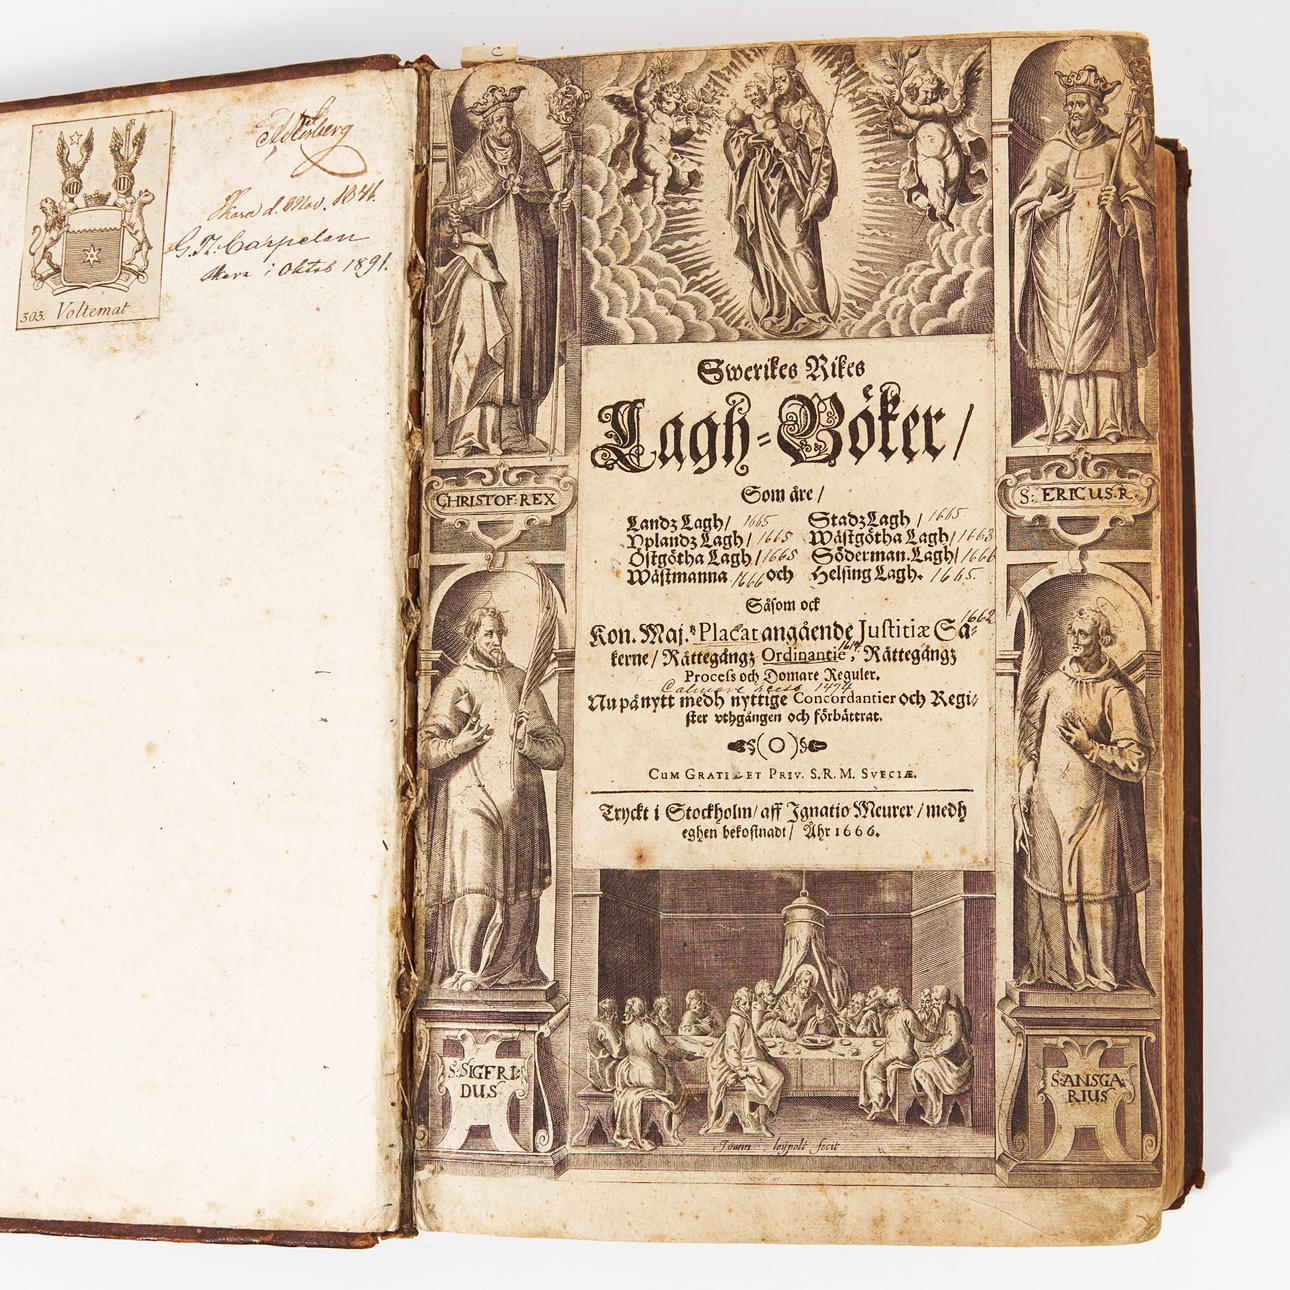 C
303. Voltemat
Skara d. Nov. 1841.
Carpelan
Skara i Oktob 1891.
CHRISTOF: REX
S: ERICUS. R.
Swerikes Rikes
Lagh-Böker/
Som äre/
Landz Lagh/ 1665 Stadz Lagh/ 1665
Vplandz Lagh/ 1665 Wästgötha Lagh/ 1663
Östgötha Lagh/ 1665 Söderman. Lagh/ 1666
Wästmanna 1666 och Helsing Lagh. 1665.
Såsom ock
1662
Kon. Maj.ᵗˢ Placat angående Justitiæ Sa-
kerne/ Rättegångz Ordinantie, Rättegångz
Process och Domare Reguler.
1474
Nu på nytt medh nyttige Concordantier och Regi-
ster vthgången och förbättrat.
(O)
CUM GRATIA ET PRIV. S. R. M. SVECIÆ.
Tryckt i Stockholm/ aff Ignatio Meurer/ medh
eghen bekostnadt/ Åhr 1666.
S. SIGFRI-
DUS
S. ANSGA-
RIUS
Joann leypolt fecit